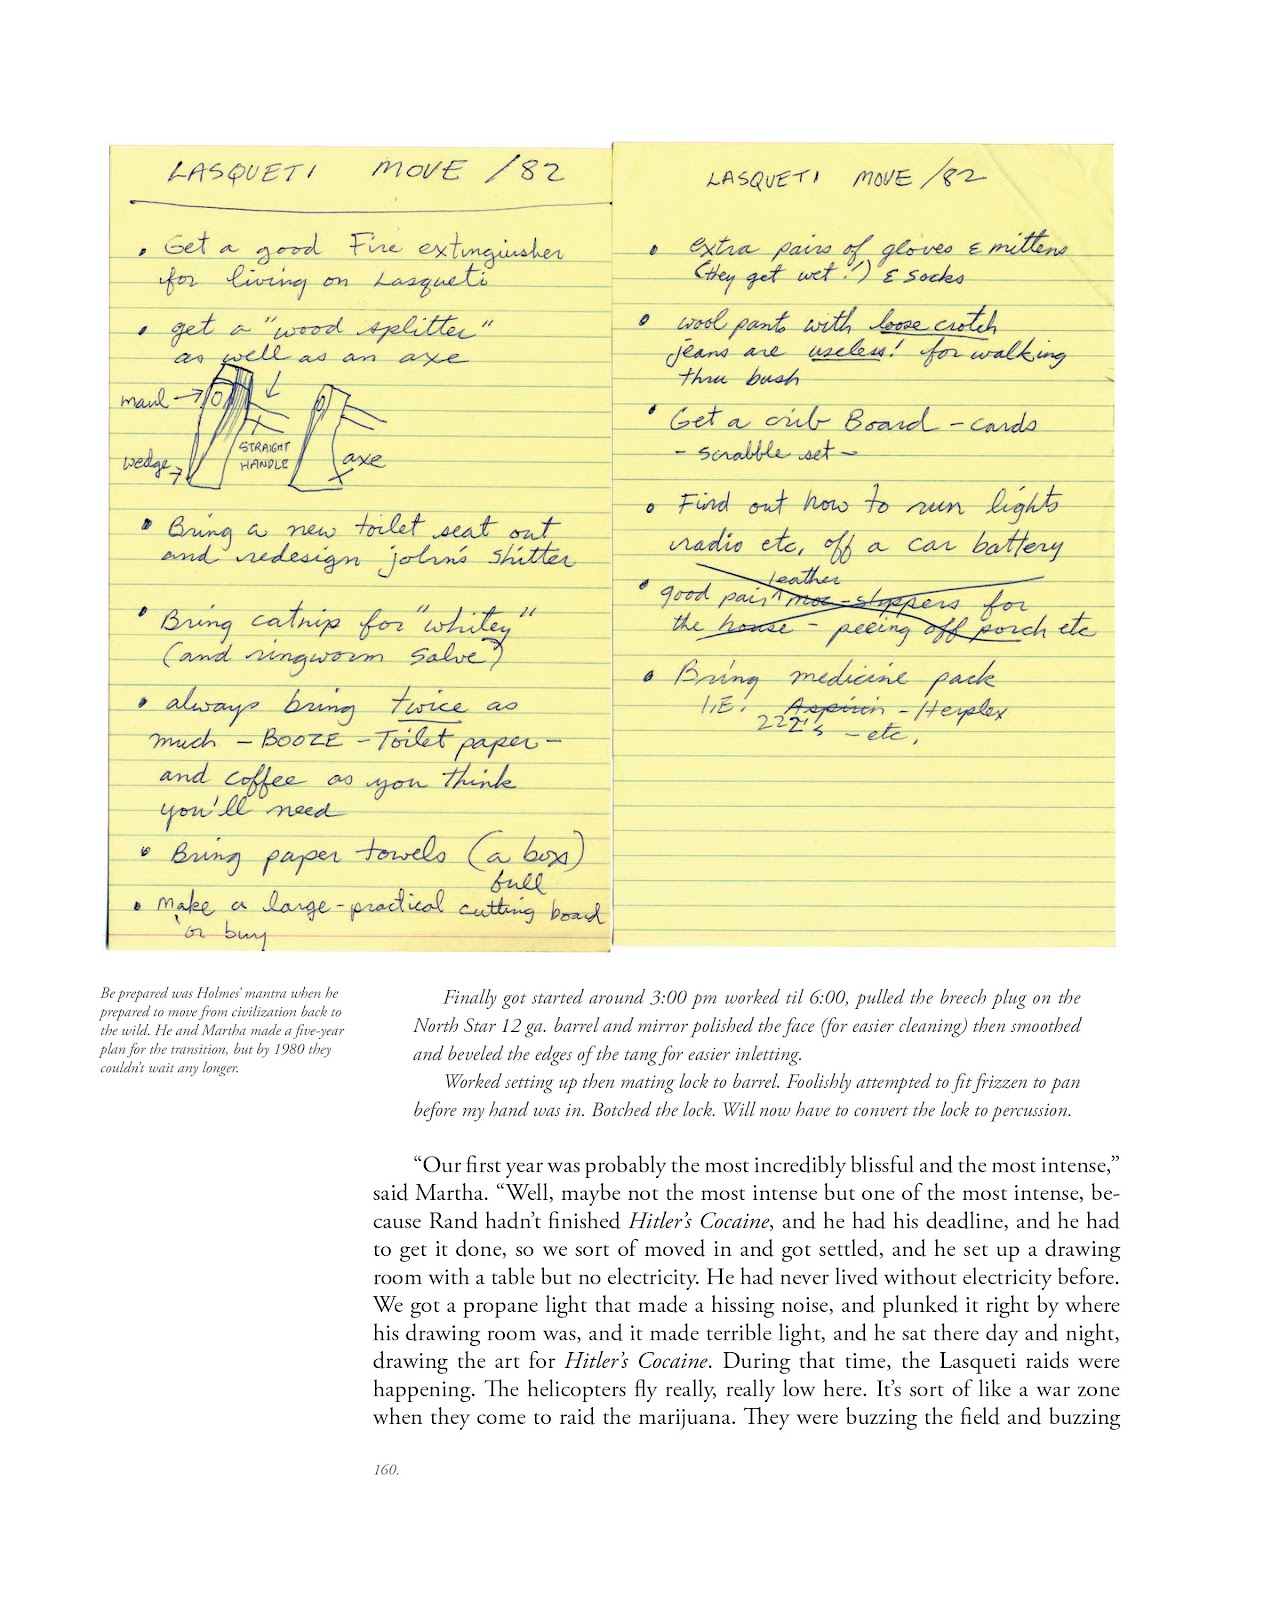 LASQUETI MOVE /82
• Get a good Fire extinguisher
for living on Lasqueti
• get a "wood splitter"
as well as an axe
maul
wedge
STRAIGHT
HANDLE
axe
• Bring a new toilet seat out
and redesign john's shitter
• Bring catnip for "whitey"
(and ringworm salve)
• always bring twice as
much - BOOZE - Toilet paper -
and coffee as you think
you'll need
• Bring paper towels (a box)
full
• make a large-practical cutting board
or buy
LASQUETI MOVE /82
• extra pairs of gloves & mittens
(they get wet!) & socks
• wool pants with loose crotch
jeans are useless! for walking
thru bush
• Get a crib Board - cards
- scrabble set -
• Find out how to run lights
radio etc, off a car battery
leather
• good pair moc-slippers for
the house - peeing off porch etc
• Bring medicine pack
I.E. Aspirin - Herplex
222's - etc.
Be prepared was Holmes' mantra when he
prepared to move from civilization back to
the wild. He and Martha made a five-year
plan for the transition, but by 1980 they
couldn't wait any longer.
Finally got started around 3:00 pm worked til 6:00, pulled the breech plug on the
North Star 12 ga. barrel and mirror polished the face (for easier cleaning) then smoothed
and beveled the edges of the tang for easier inletting.
Worked setting up then mating lock to barrel. Foolishly attempted to fit frizzen to pan
before my hand was in. Botched the lock. Will now have to convert the lock to percussion.
“Our first year was probably the most incredibly blissful and the most intense,”
said Martha. “Well, maybe not the most intense but one of the most intense, be-
cause Rand hadn’t finished Hitler’s Cocaine, and he had his deadline, and he had
to get it done, so we sort of moved in and got settled, and he set up a drawing
room with a table but no electricity. He had never lived without electricity before.
We got a propane light that made a hissing noise, and plunked it right by where
his drawing room was, and it made terrible light, and he sat there day and night,
drawing the art for Hitler’s Cocaine. During that time, the Lasqueti raids were
happening. The helicopters fly really, really low here. It’s sort of like a war zone
when they come to raid the marijuana. They were buzzing the field and buzzing
160.